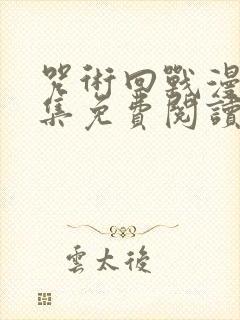 咒術回戰漫
集免費閱讀
雲太後